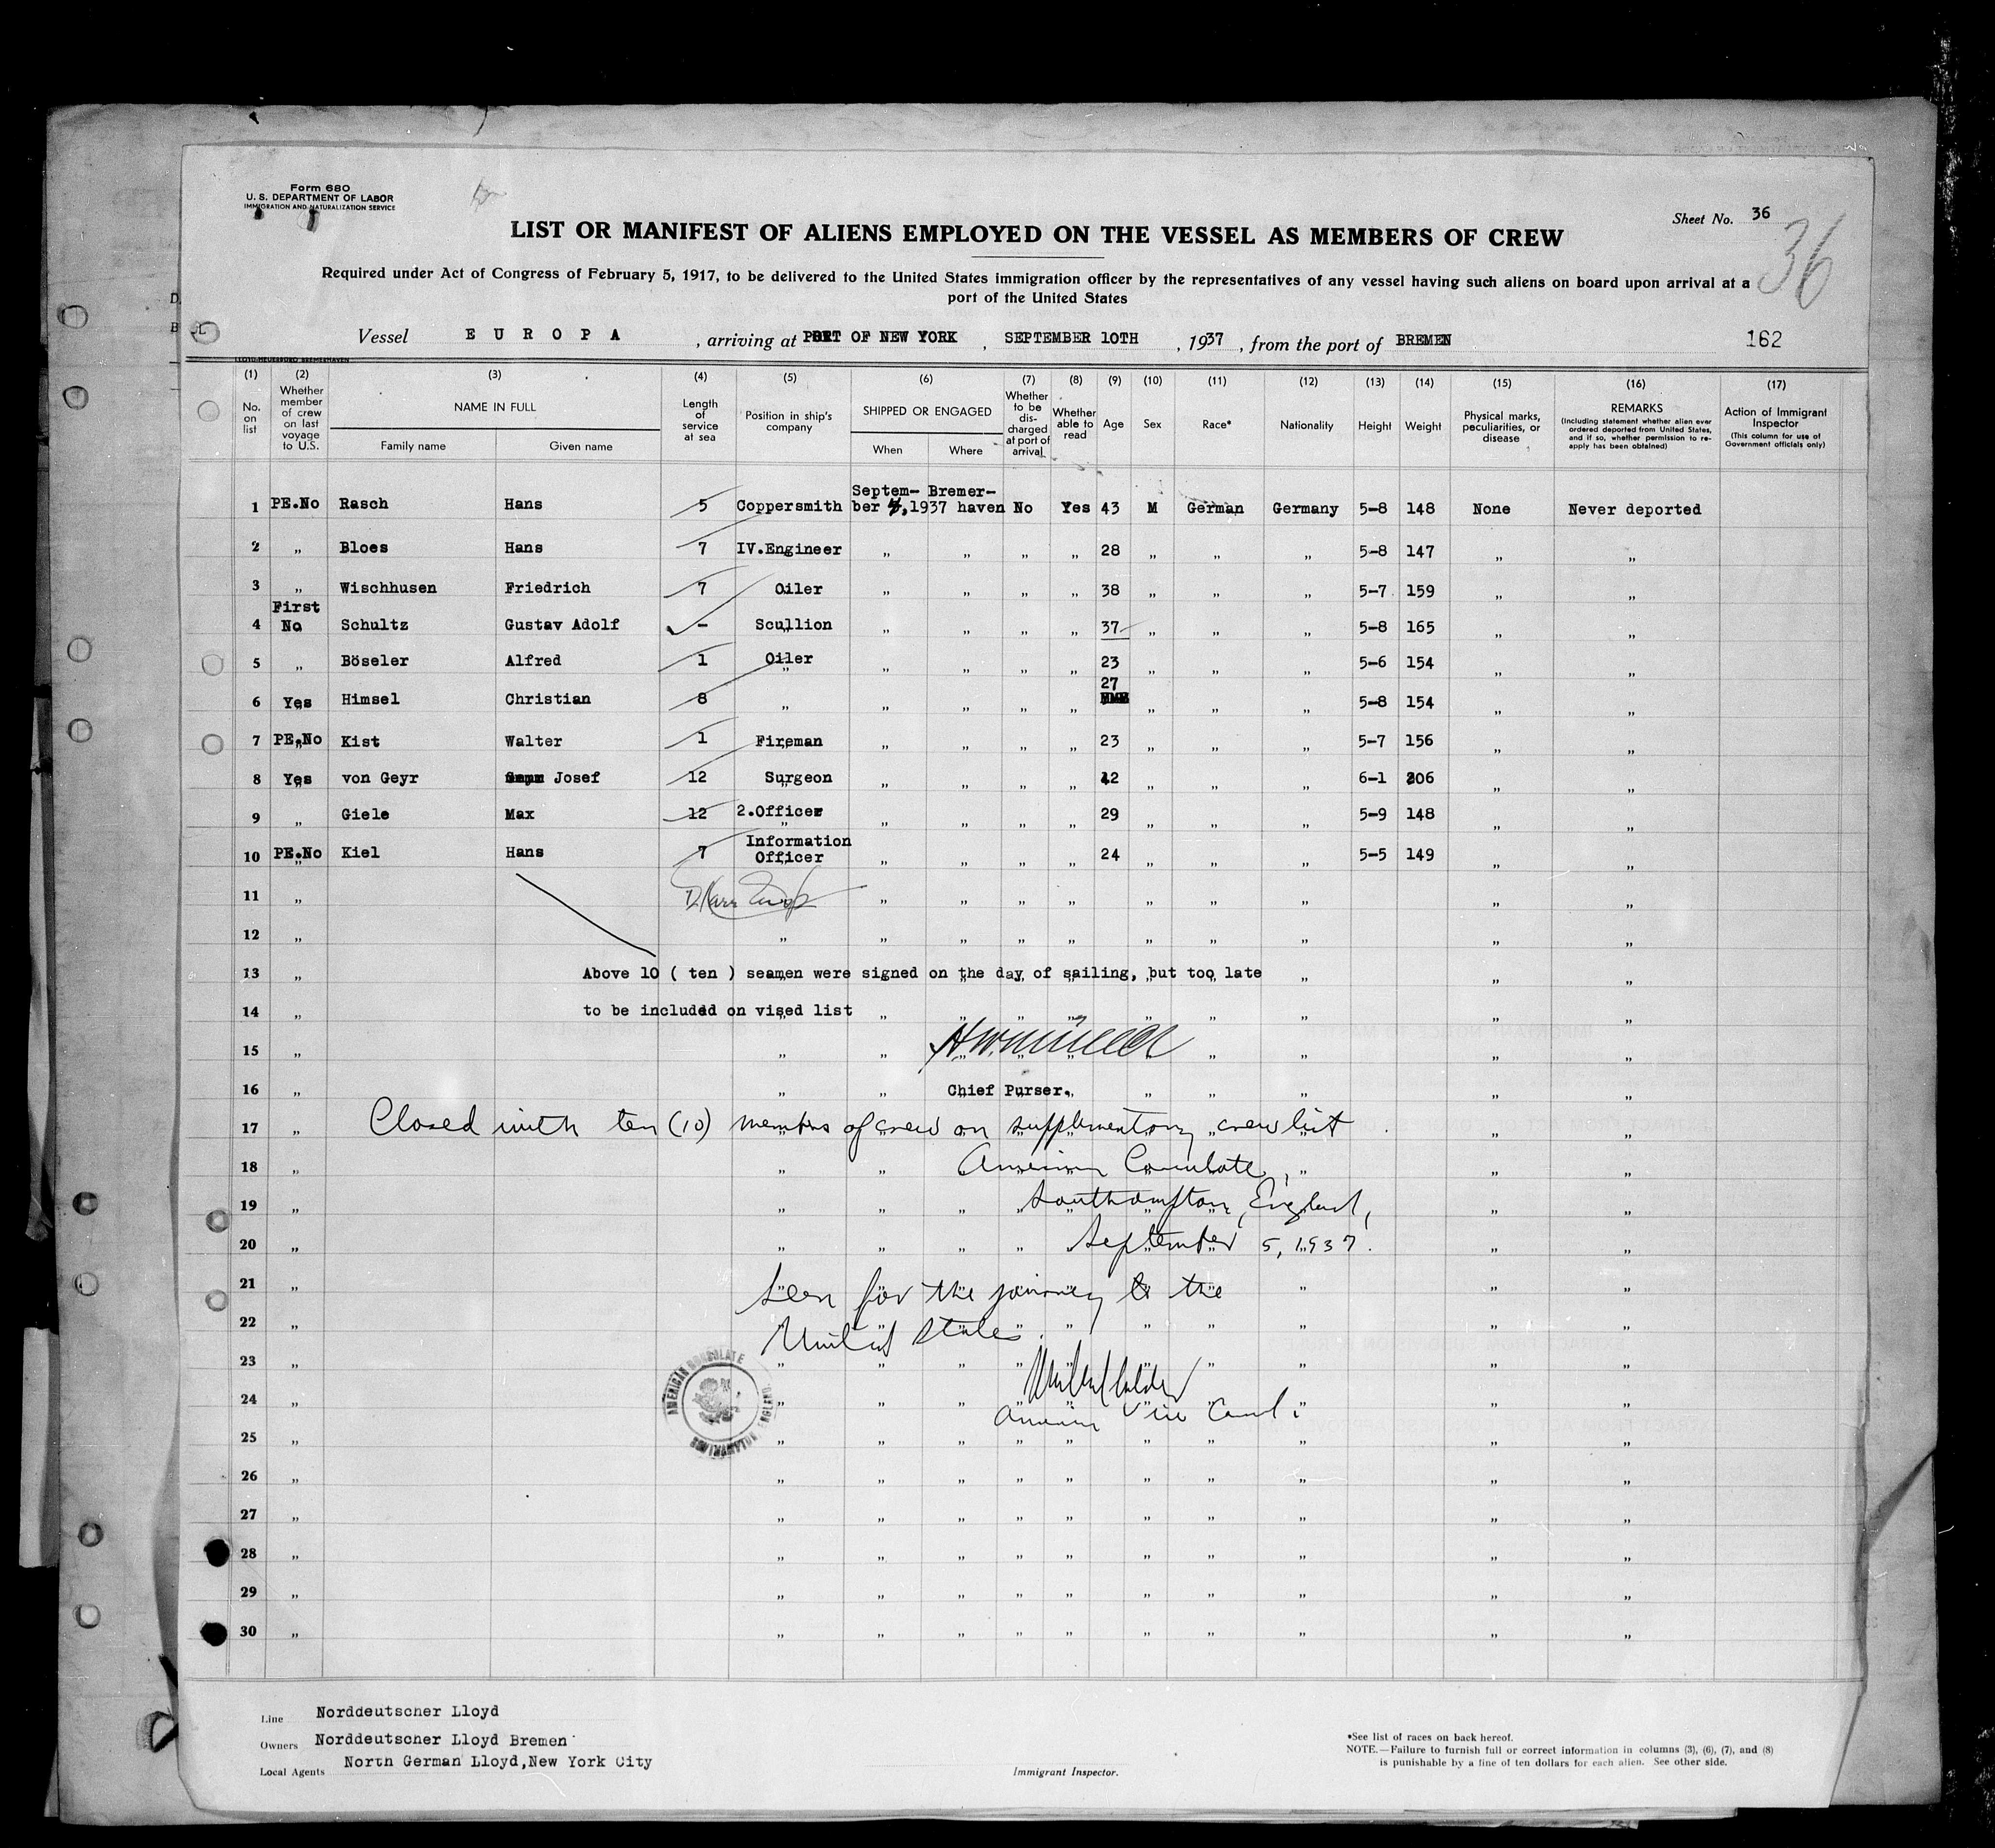 Form 680
U. S. DEPARTMENT OF LABOR
IMMIGRATION AND NATURALIZATION SERVICE
Sheet No. 36
36
LIST OR MANIFEST OF ALIENS EMPLOYED ON THE VESSEL AS MEMBERS OF CREW
Required under Act of Congress of February 5, 1917, to be delivered to the United States immigration officer by the representatives of any vessel having such aliens on board upon arrival at a
port of the United States
Vessel E U R O P A , arriving at PORT OF NEW YORK , SEPTEMBER 10TH , 1937 , from the port of BREMEN 162
(1) (2) (3) (4) (5) (6) (7) (8) (9) (10) (11) (12) (13) (14) (15) (16) (17)
No. on list Whether member of crew on last voyage to U.S. NAME IN FULL Length of service at sea Position in ship's company SHIPPED OR ENGAGED Whether to be discharged at port of arrival Whether able to read Age Sex Race* Nationality Height Weight Physical marks, peculiarities, or disease REMARKS (Including statement whether alien ever ordered deported from United States, and if so, whether permission to re-apply has been obtained) Action of Immigrant Inspector (This column for use of Government officials only)
Family name Given name When Where
1 PE.No Rasch Hans 5 Coppersmith September 4, 1937 Bremerhaven No Yes 43 M German Germany 5-8 148 None Never deported
2 „ Bloes Hans 7 IV.Engineer „ „ „ „ 28 „ „ „ 5-8 147 „ „
3 „ Wischhusen Friedrich 7 Oiler „ „ „ „ 38 „ „ „ 5-7 159 „ „
4 First No Schultz Gustav Adolf - Scullion „ „ „ „ 37 „ „ „ 5-8 165 „ „
5 „ Böseler Alfred 1 Oiler „ „ „ „ 23 „ „ „ 5-6 154 „ „
6 Yes Himsel Christian 8 „ „ „ „ „ 27 „ „ „ 5-8 154 „ „
7 PE.No Kist Walter 1 Fireman „ „ „ „ 23 „ „ „ 5-7 156 „ „
8 Yes von Geyr Josef 12 Surgeon „ „ „ „ 42 „ „ „ 6-1 206 „ „
9 „ Giele Max 12 2.Officer „ „ „ „ 29 „ „ „ 5-9 148 „ „
10 PE.No Kiel Hans 7 Information Officer „ „ „ „ 24 „ „ „ 5-5 149 „ „
11
12
13 Above 10 ( ten ) seamen were signed on the day of sailing, but too late
14 to be included on vised list
15
16 Chief Purser.
17 Closed with ten (10) members of crew on supplementary crew list
18 American Consulate,
19 Southampton, England,
20 September 5, 1937.
21 Seen for the journey to the
22 United States.
23
24 American Vice Consul.
AMERICAN CONSULATE SOUTHAMPTON ENGLAND
25
26
27
28
29
30
Line Norddeutscher Lloyd
Owners Norddeutscher Lloyd Bremen
Local Agents North German Lloyd,New York City
Immigrant Inspector.
*See list of races on back hereof.
NOTE.—Failure to furnish full or correct information in columns (3), (6), (7), and (8)
is punishable by a fine of ten dollars for each alien. See other side.